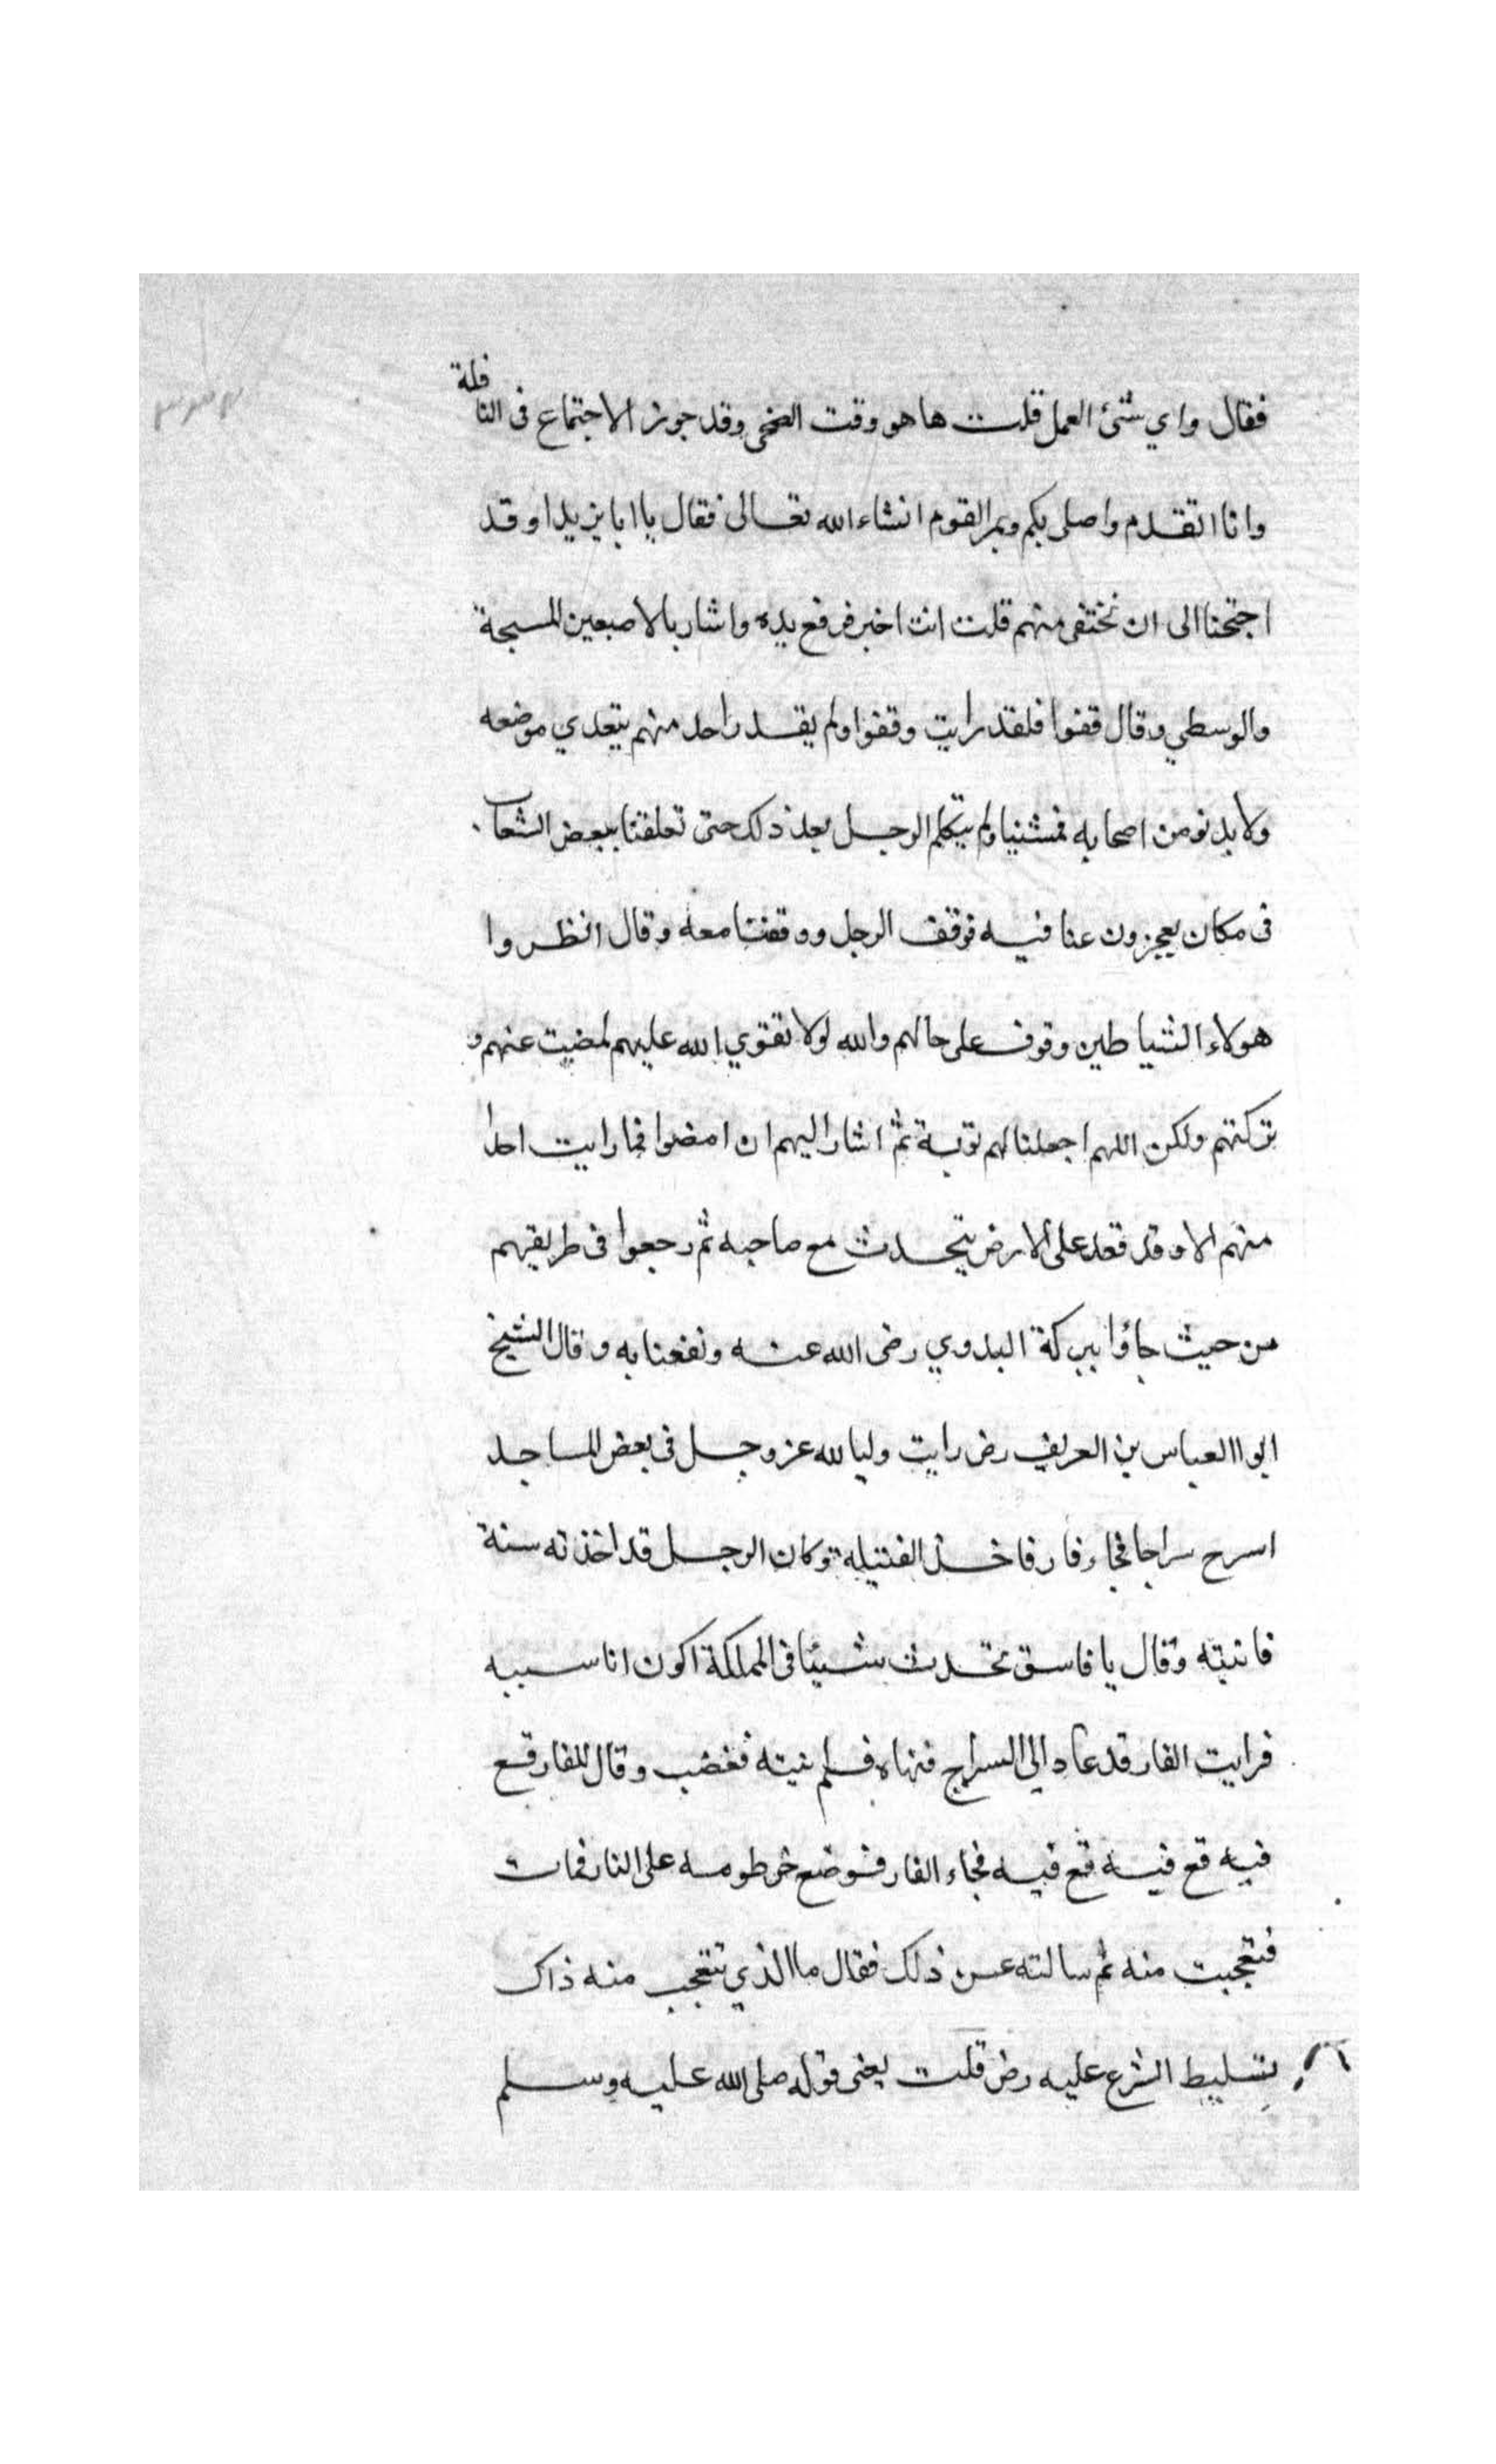 فقال واي شئ العمل قلت ها هو وقت الضحى وقد جوز الاجتماع فى النافلة
وانا اتقدم واصلى بكم ويمر القوم انشاء الله تعالى فقال يا ابا يزيد او قد
اجتحنا الى ان نختفى منهم قلت انت اخبر فرفع يده واشار بالاصبعين المسبحة
والوسطي وقال قفوا فلقد رايت وقفوا ولم يقدر احد منهم يتعدي موضعه
ولا يدنو من اصحابه فمشنيا ولم يتكلم الرجل بعد ذلك حتى تعلقنا ببعض الشعاب
فى مكان يعجزون عنا فيه فوقف الرجل ووقفنا معه وقال انظروا
هولاء الشياطين وقوف على حالهم والله لولا تقوي الله عليهم لمضيت عنهم و
تركتهم ولكن اللهم اجعلنا لهم توبة ثم اشار اليهم ان امضوا فما رايت احدا
منهم الا وقد قعد على الارض يتحدث مع صاحبه ثم رجعوا فى طريقهم
من حيث جاؤا ببركة البدوي رضى الله عنه ونفعنا به وقال الشيخ
ابو العباس بن العريف رض رايت وليا لله عز وجل فى بعض المساجد
اسرج سراجا فجاء فار فاخذ الفتيله وكان الرجل قد اخذته سنة
فانتبه وقال يا فاسق تحدث شيئا فى المملكة اكون انا سببه
فرايت الفار قد عاد الى السراج فنهاه فلم ينته فغضب وقال للفار قع
فيه قع فيه قع فيه فجاء الفار فوضع خرطومه على النار فمات
فتعجبت منه ثم سالته عن ذلك فقال ما الذي تتعجب منه ذاك
بتسليط الشرع عليه رض قلت يعنى قوله صلى الله عليه وسلم